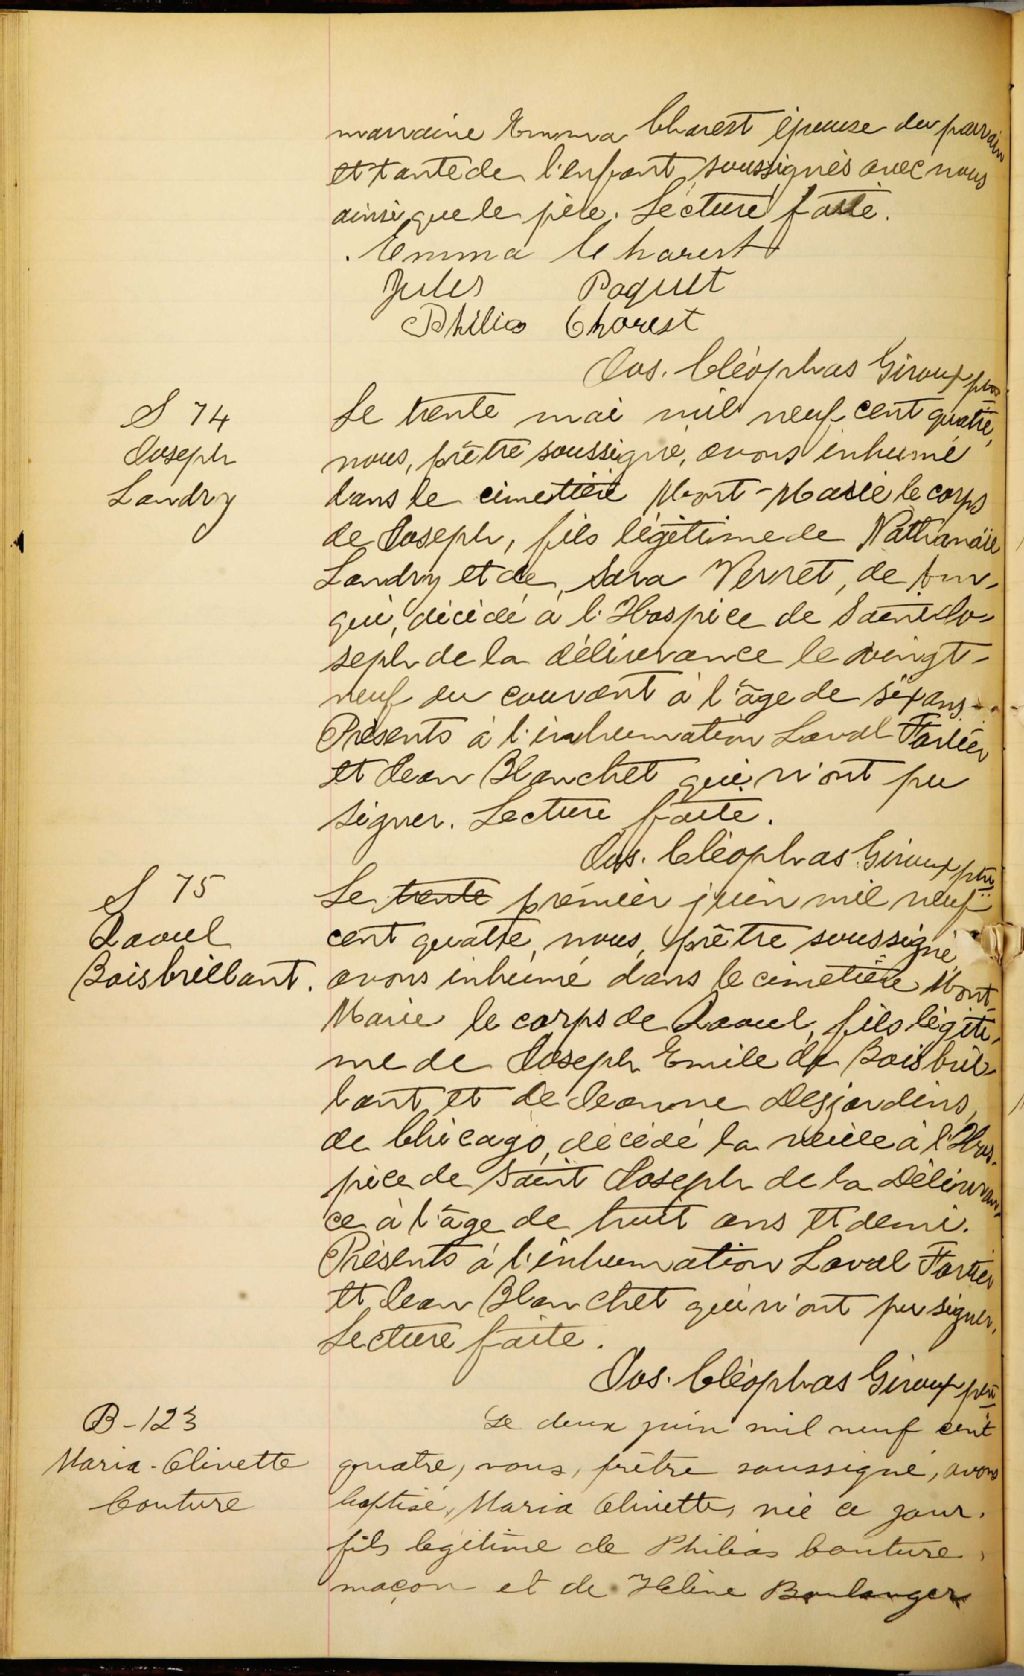 marraine Emma Charest épouse du parrain
et tante de l'enfant, soussignés avec nous
ainsi que le père. Lecture faite.
Emma Charest
Jules Paquet
Philias Charest
Jos. Cléophas Giroux ptre
S 74
Joseph
Landry
Le trente mai mil neuf cent quatre,
nous, prêtre soussigné, avons inhumé
dans le cimetière Mont-Marie le corps
de Joseph, fils légitime de Nathanaël
Landry et de Sara Verret, de Am-
qui, décédé à l'Hospice de Saint Jo-
seph de la délivrance le vingt-
neuf du courant à l'âge de six ans.
Présents à l'inhumation Laval Fortier
et Jean Blanchet qui n'ont pu
signer. Lecture faite.
Jos. Cléophas Giroux ptre
S 75
Raoul
Boisbrillant.
Le trente premier juin mil neuf
cent quatre, nous, prêtre soussigné,
avons inhumé dans le cimetière Mont-
Marie le corps de Raoul, fils légiti-
me de Joseph Emile de Boisbril-
lant et de Jeanne Desjardins,
de Chicago, décédé la veille à l'Hos-
pice de Saint Joseph de la Délivran-
ce à l'âge de huit ans et demi.
Présents à l'inhumation Laval Fortier
et Jean Blanchet qui n'ont pu signer.
Lecture faite.
Jos. Cléophas Giroux ptre
B-123
Maria-Olivette
Couture
Le deux juin mil neuf cent
quatre, nous, prêtre soussigné, avons
baptisé, Maria Olivette, née ce jour,
fils légitime de Philias Couture,
maçon et de Héline Boulanger